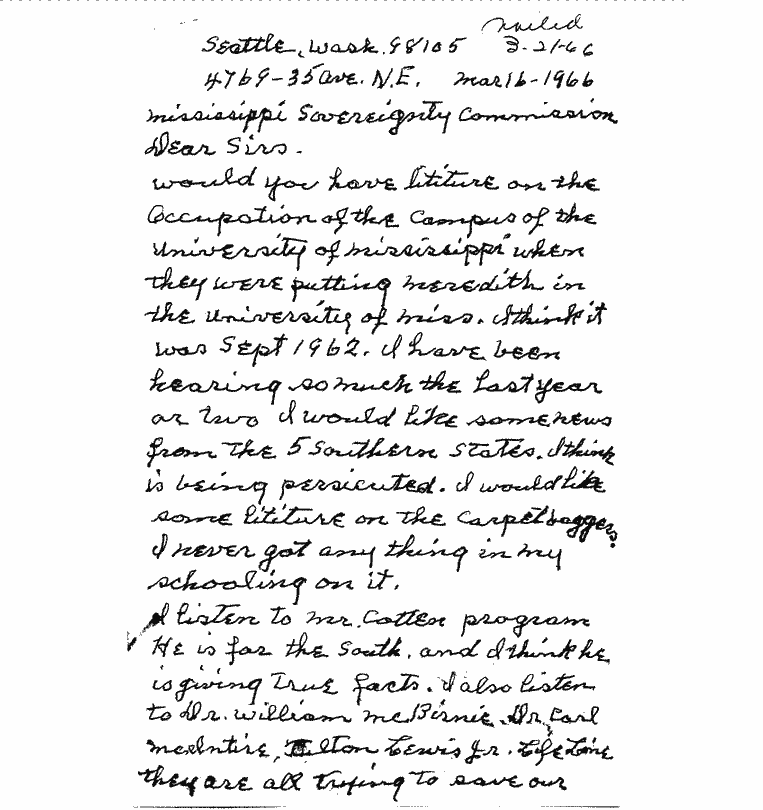 mailed
Seattle, Wash. 98105 3-21-66
4769-35 ave. N.E. mar 16-1966
mississippi Sovereignty Commission
Dear Sirs-
would you have lititure on the
Occupation of the campus of the
University of mississippi when
they were putting meredith in
the University of miss. I think it
was Sept 1962. I have been
hearing so much the last year
or two I would like some news
from the 5 Southern States. I think
is being persicuted. I would like
some lititure on the carpetbaggers.
I never got any thing in my
schooling on it.
I listen to mr. Cotten program
He is for the South. and I think he
is giving True facts. I also listen
to Dr. william mcBirnie, Dr. Carl
mcIntire, Fulton Lewis Jr. Life Line
they are all trying to save our